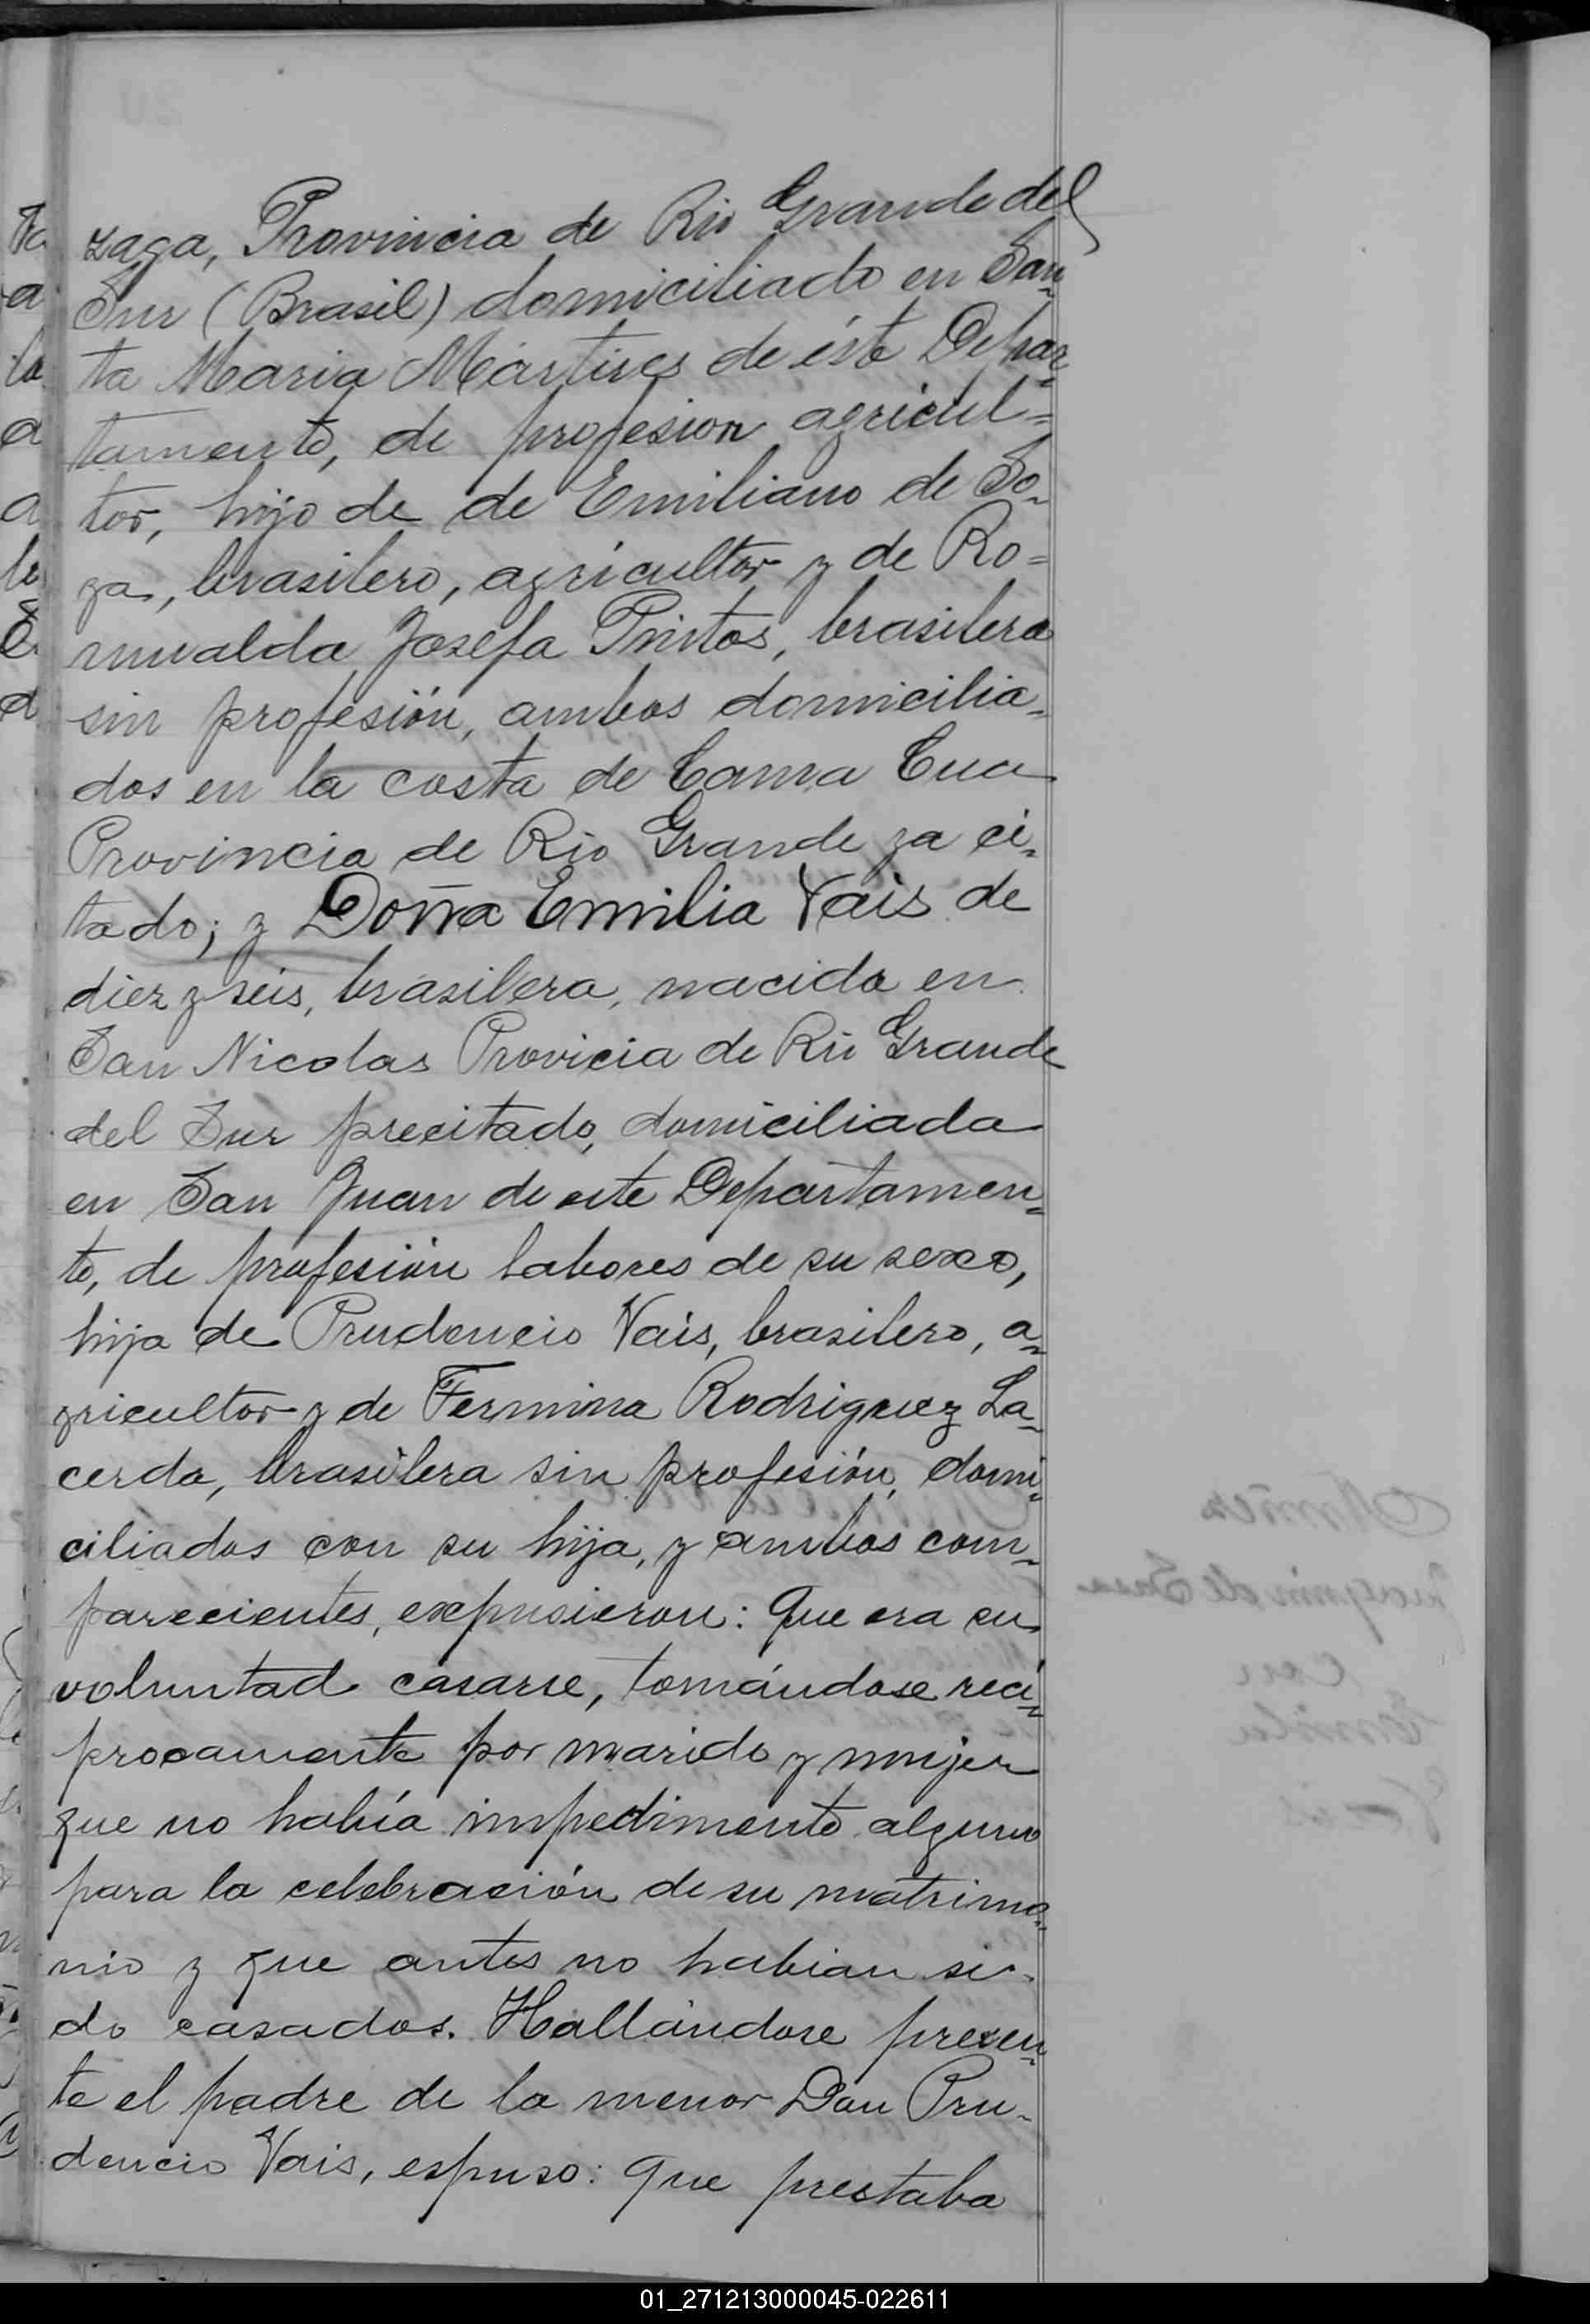 zaga, Provincia de Rio Grande del
Sur (Brasil) domiciliado en San=
ta Maria Mártires de éste Depar=
tamento, de profesion agricul=
tor, hijo de de Emiliano de So=
za, brasilero, agricultor y de Ro=
mualda Josefa Pintos, brasilera
sin profesión, ambos domicilia=
dos en la costa de Cama Cua
Provincia de Rio Grande ya ci=
tado; y Doña Emilia Vais de
diez y seis, brasilera, nacida en
San Nicolas Provicia de Rio Grande
del Sur precitado, domiciliada
en San Juan de este Departamen=
to, de profesión labores de su sexo,
hija de Prudencio Vais, brasilero, a=
gricultor y de Fermina Rodriguez La=
cerda, brasilera sin profesión, domi=
ciliados con su hija, y ambos com=
parecientes, expusieron: Que era su
voluntad casarse, tomándose reci=
procamente por marido y mujer
que no había impedimento alguno
para la celebración de su matrimo=
nio y que antes no habian si=
do casados. Hallándose presen=
te el padre de la menor Don Pru=
dencio Vais, espuso: Que prestaba
01_271213000045-022611